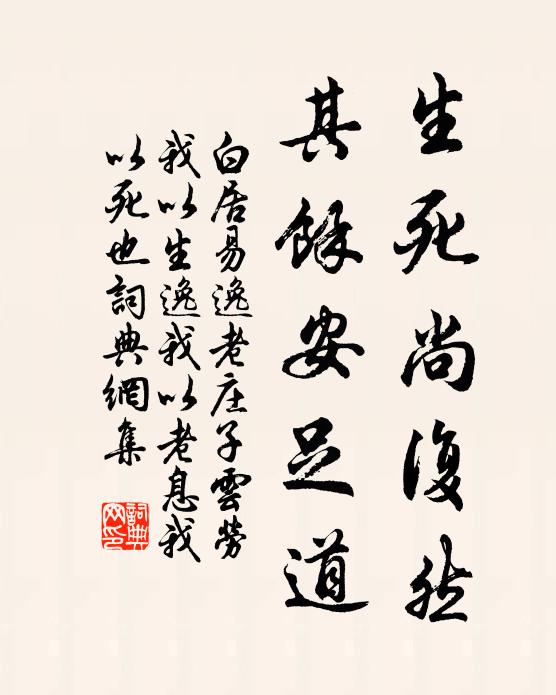 生死尚復然
其餘安足道
白居易逸老庄子雲勞
我以生逸我以老息我
以死也詞典網集
詞典
网印